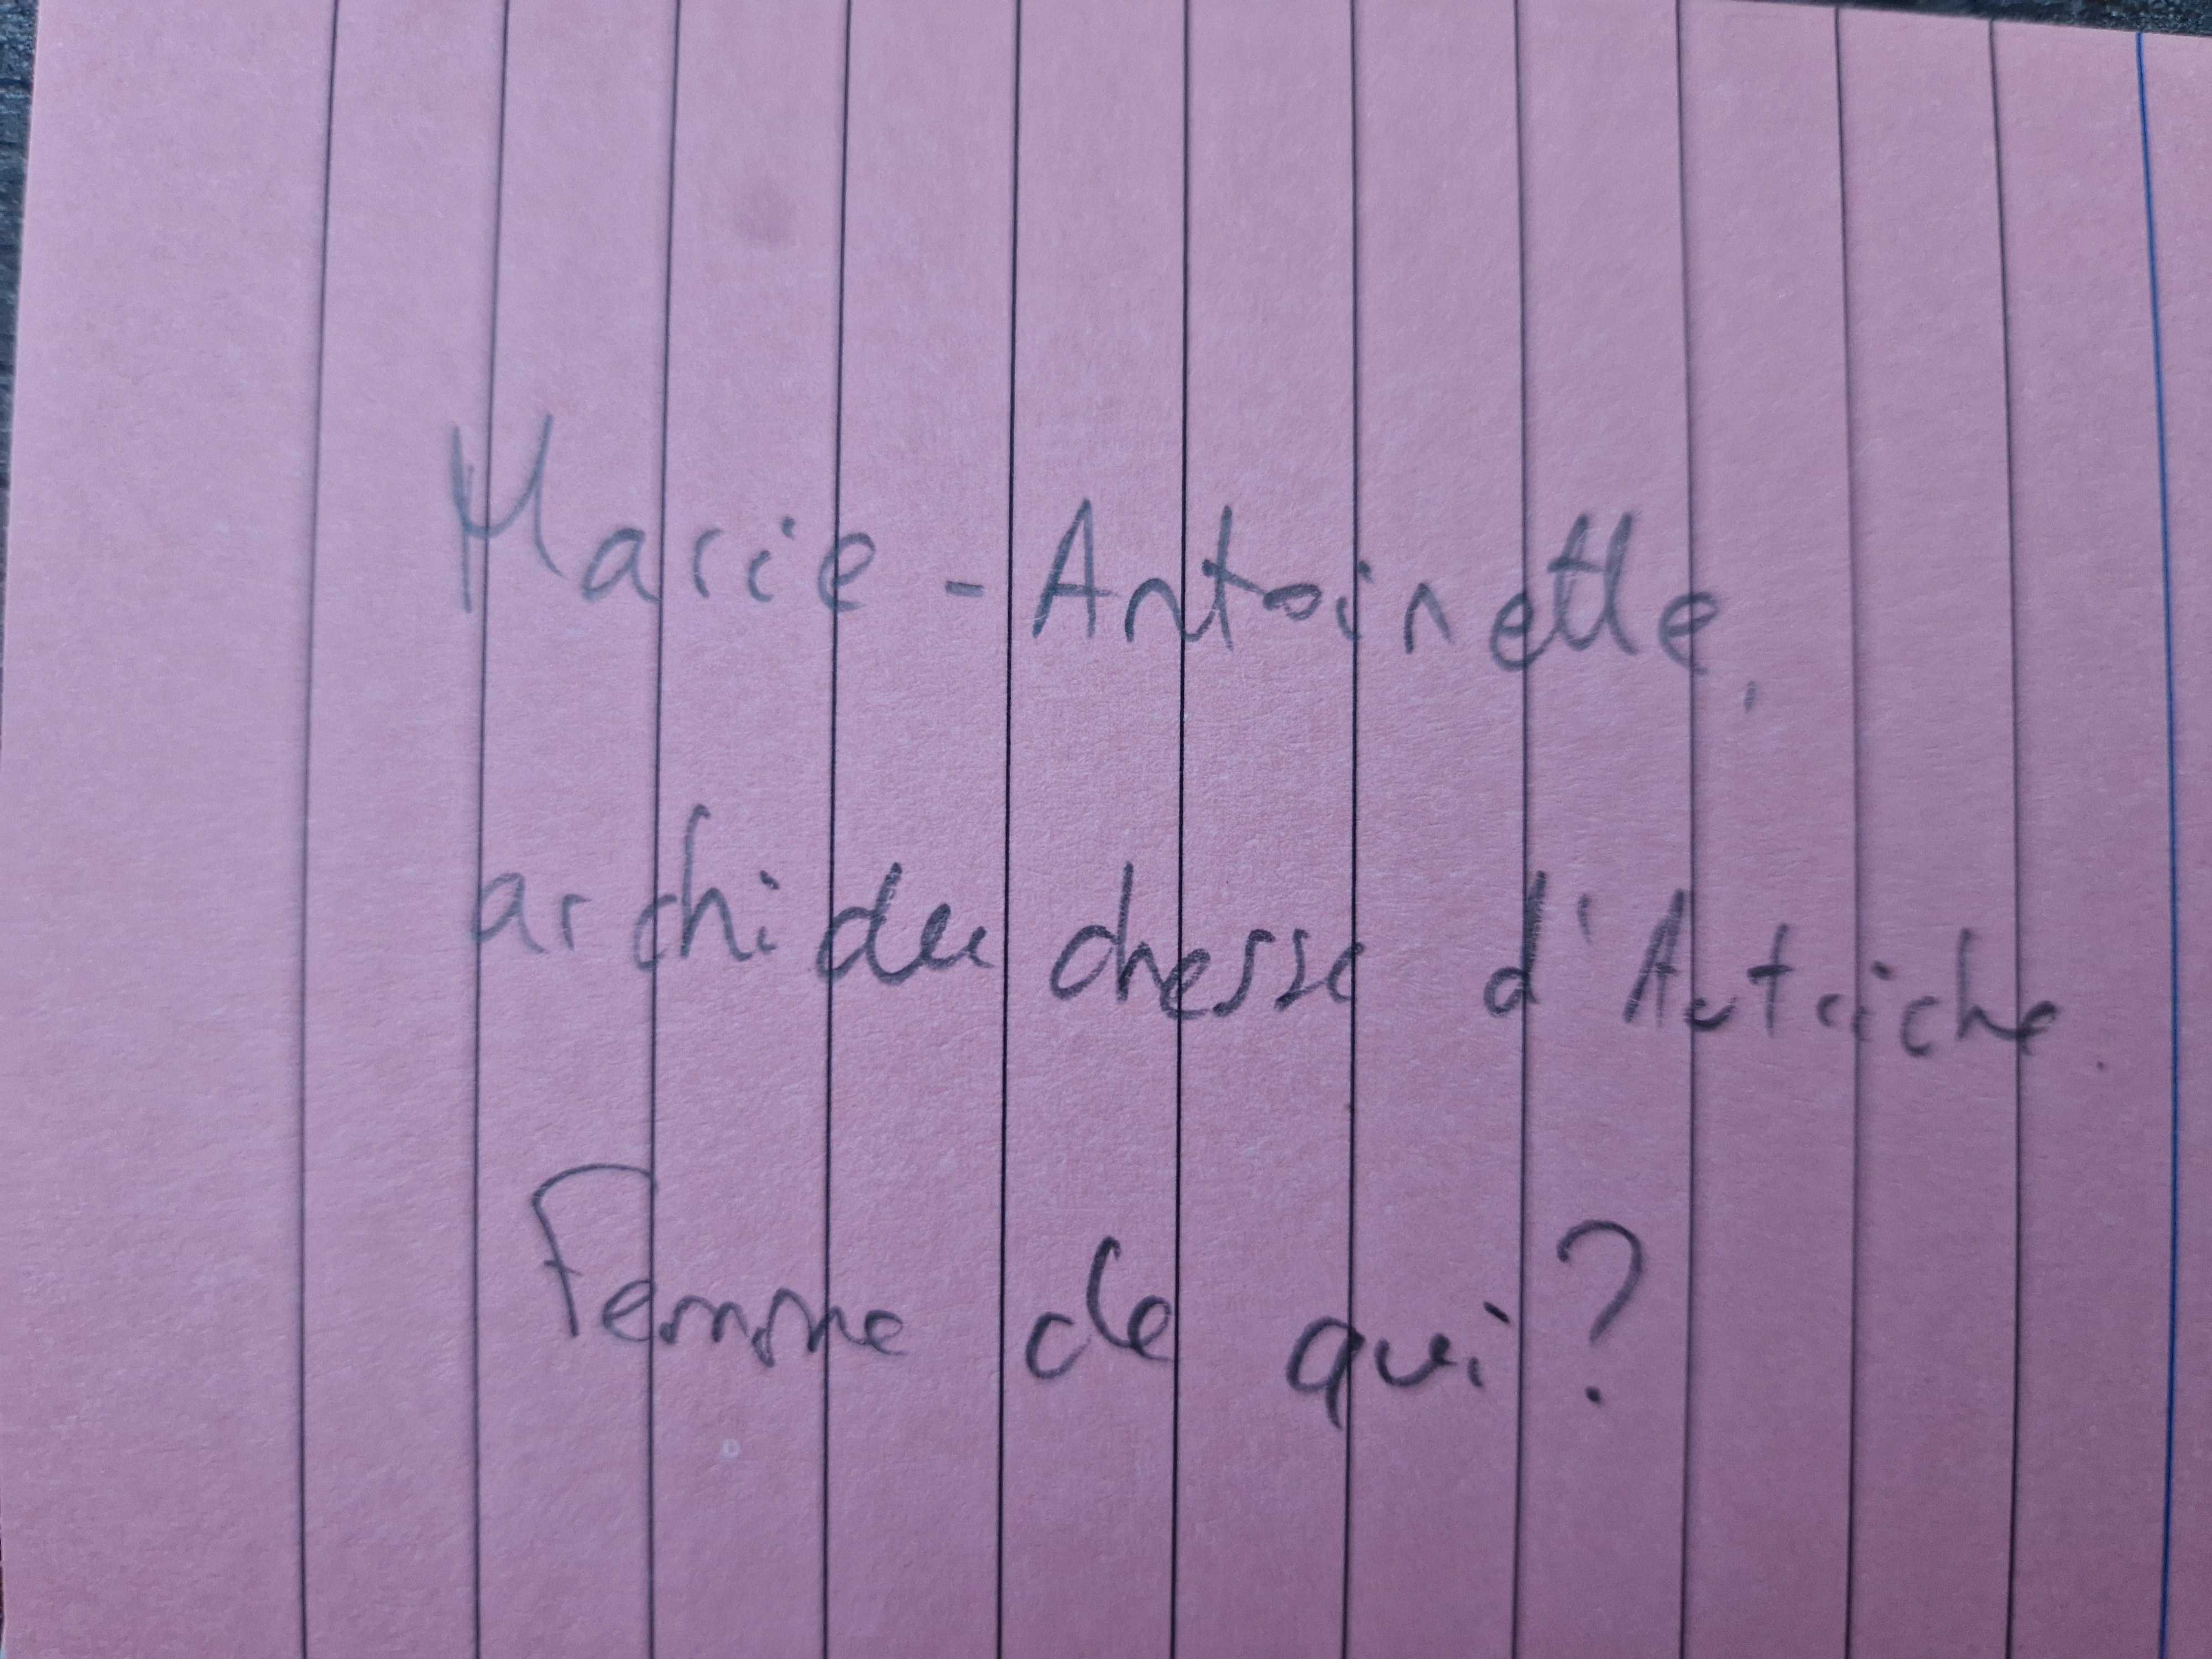 Marie-Antoinette,
archiduchesse d'Autriche.
Femme de qui?